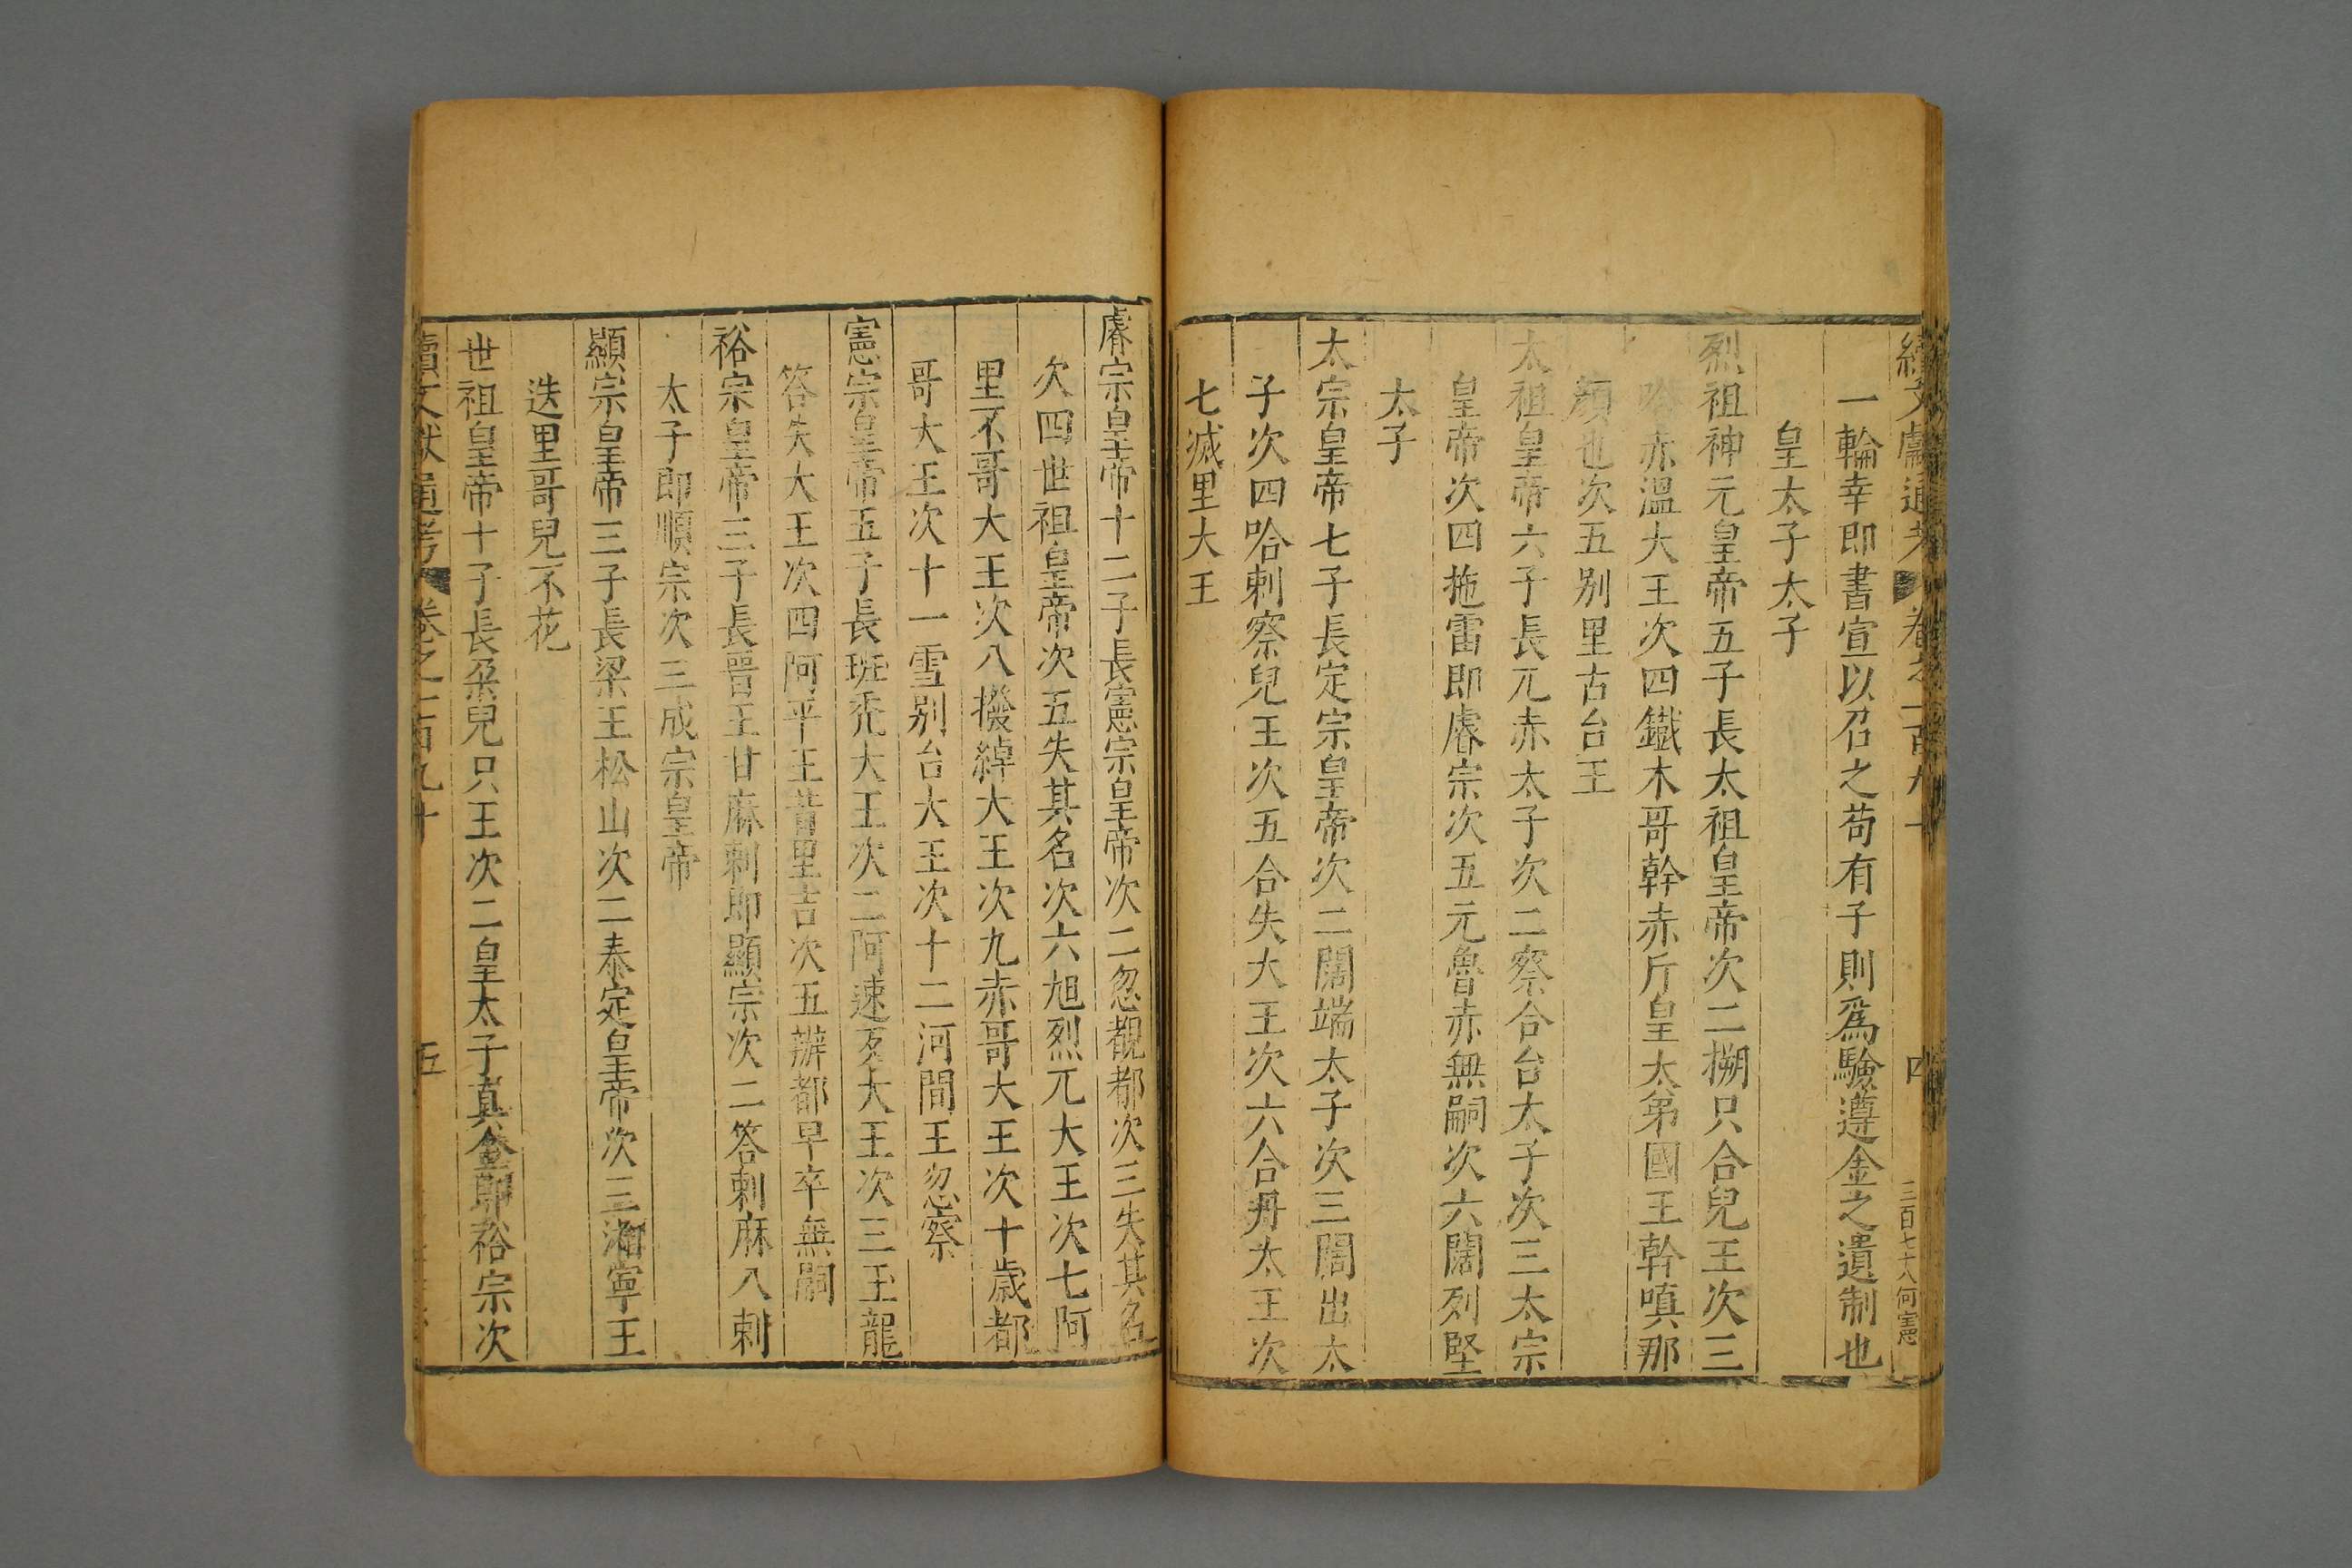 續文獻通考 卷之二百九十 四 三百七十八何憲
一輪幸即書宣以召之苟有子則爲驗遵金之遺制也
皇太子太子
烈祖神元皇帝五子長太祖皇帝次二搠只合兒王次三
哈赤溫大王次四鐵木哥幹赤斤皇太弟國王幹嗔那
顏也次五别里古台王
太祖皇帝六子長兀赤太子次二察合台太子次三太宗
皇帝次四拖雷即睿宗次五元魯赤無嗣次六闊列堅
太子
太宗皇帝七子長定宗皇帝次二闊端太子次三闊出太
子次四哈剌察兒王次五合失大王次六合丹太王次
七滅里大王
睿宗皇帝十二子長憲宗皇帝次二忽覩都次三失其名
次四世祖皇帝次五失其名次六旭烈兀大王次七阿
里不哥大王次八撥綽大王次九赤哥大王次十歲都
哥大王次十一雪别台大王次十二河間王忽察
憲宗皇帝五子長班禿大王次二阿速歹大王次三玉龍
答失大王次四河平王昔里吉次五辦都早卒無嗣
裕宗皇帝三子長晉王甘麻剌即顯宗次二答剌麻八剌
太子即順宗次三成宗皇帝
顯宗皇帝三子長梁王松山次二泰定皇帝次三湘寧王
迭里哥兒不花
世祖皇帝十子長朶兒只王次二皇太子真金即裕宗次
續文獻通考 卷之二百九十 五